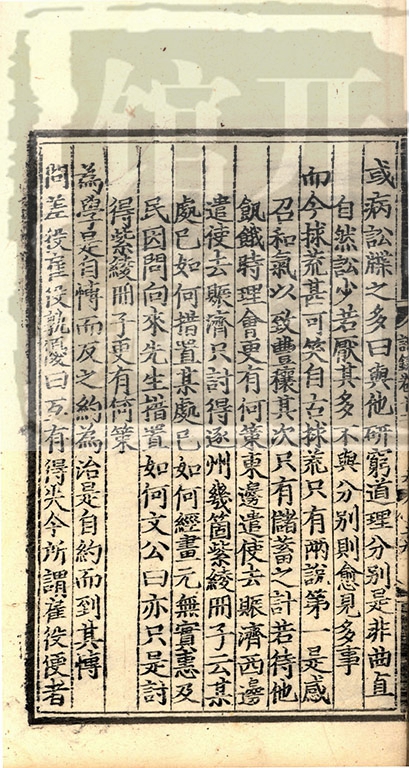 或病訟牒之多曰與他研窮道理分别是非曲直
自然訟少若厭其多不與分别則愈見多事
而今捄荒甚可笑自古捄荒只有兩說第一是感
召和氣以致豐穰其次只有儲蓄之計若待他
飢餓時理會更有何策東邊遣使去賑濟西邊
遣使去賑濟只討得逐州幾箇紫綾冊子云某
處已如何措置某處已如何經畫元無實惠及
民因問向來先生措置如何文公曰亦只是討
得紫綾冊子更有何策
為學是自愽而反之約為治是自約而到其愽
問差役雇役孰優曰互有得失今所謂雇役便者